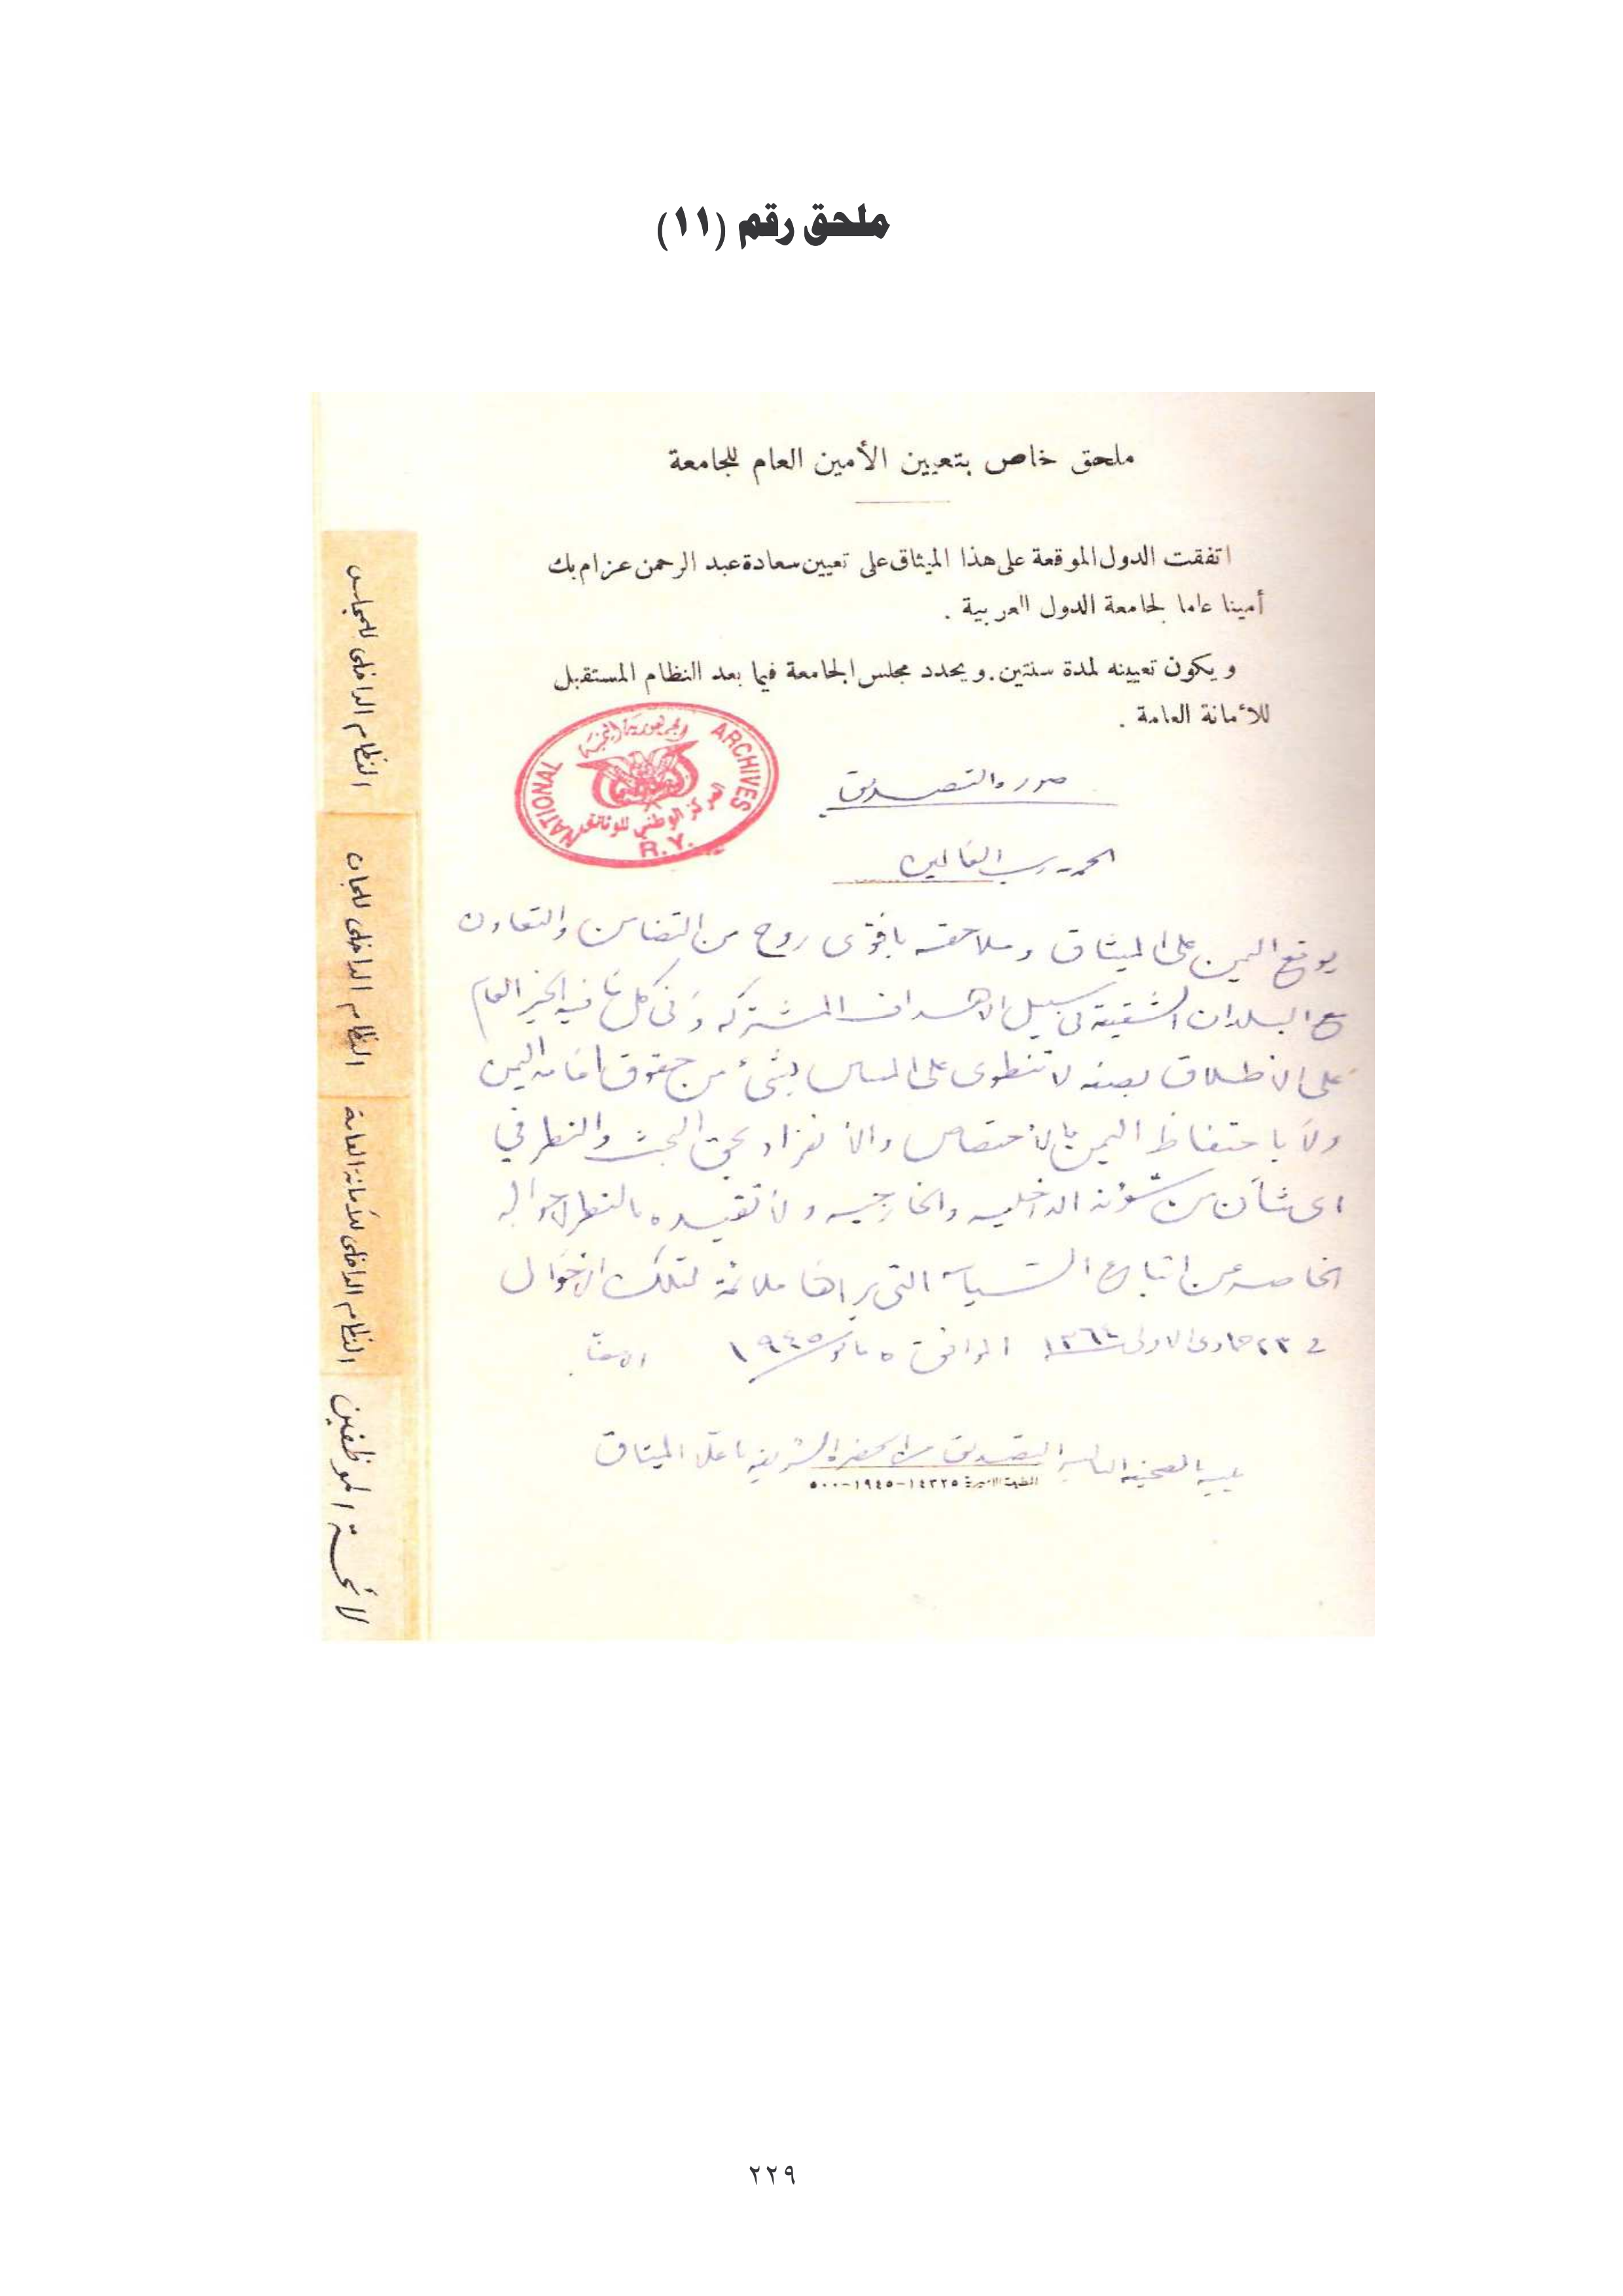 ملحق رقم (١١)
ملحق خاص بتعيين الأمين العام للجامعة
اتفقت الدول الموقعة على هذا الميثاق على تعيين سعادة عبد الرحمن عزام بك
أمينا عاما لجامعة الدول العربية .
ويكون تعيينه لمدة سنتين . ويحدد مجلس الجامعة فيما بعد النظام المستقبل
للأمانة العامة .
الجمهورية اليمنية
NATIONAL ARCHIVES
المركز الوطني للوثائق
R.Y.
صورة التصديق
الحمد لله رب العالمين
يوقع اليمن على الميثاق وملاحقه بأقوى روح من التضامن والتعاون
مع البلدان الشقيقة في سبيل الأهداف المشتركه وفي كل ما فيه الخير العام
على الاطلاق بصفه لا تنطوى على المساس بشئ من حقوق امامه اليمن
ولا باحتفاظ اليمن بالاختصاص والانفراد بحق البحث والنظر في
اى شأن من شؤنه الداخليه والخارجيه ولا تقييده بالنظر لأحواله
الخاصه عن اتباع السياسة التى يراها ملائمة لتلك الاحوال
في ٢٣ جمادى الاولى ١٣٦٤ الموافق ٥ مايو ١٩٤٥ الامضا
التصديق من الحضرة الشريفه على الميثاق
المطبعة الأميرية ١٤٣٢٥-١٩٤٥-٥٠٠
النظام الداخلى للمجلس
النظام الداخلى للجان
النظام الداخلى للأمانة العامة
لائحة الموظفين
٢٢٩